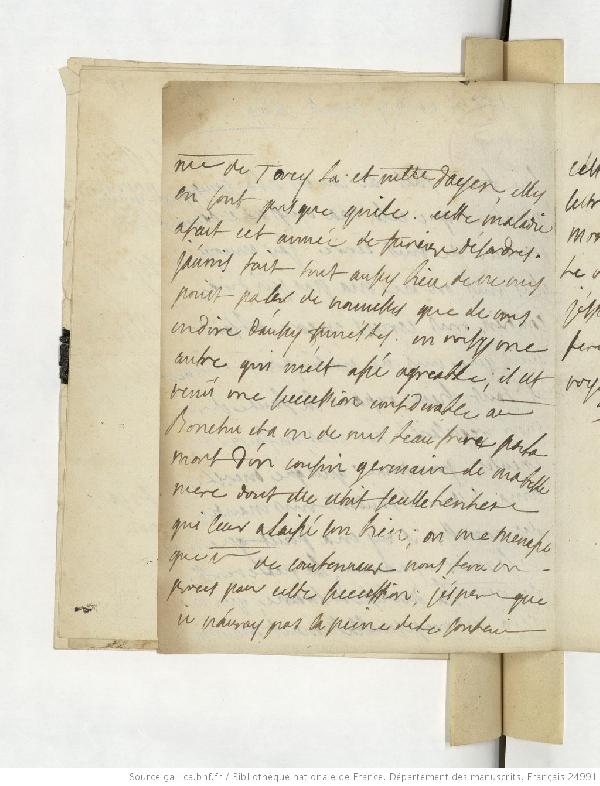 me de Torcy la. et mette dayen, elle
en sont presque quite. cette maladie
afait cet année de furieux desordres.
jaurois fait tout aussy bien de ne vous
point parler de nouvelles que de vous
en dire daussy funestes. en voissy une
autre qui mest assé agreable, il est
venu une sucession considerable a
Bonchu et a un de mes beau frere par la
mort d'un cousin germain de ma belle
mere dont elle étoit seulle heritiere
qui leur alaissé son bien; on me menasse
que de coutenneux nous fera un
proces pour cette sucession, jespere que
je n'auray pas la peine de le
Source gallica.bnf.fr / Bibliothèque nationale de France. Département des manuscrits. Français 24991